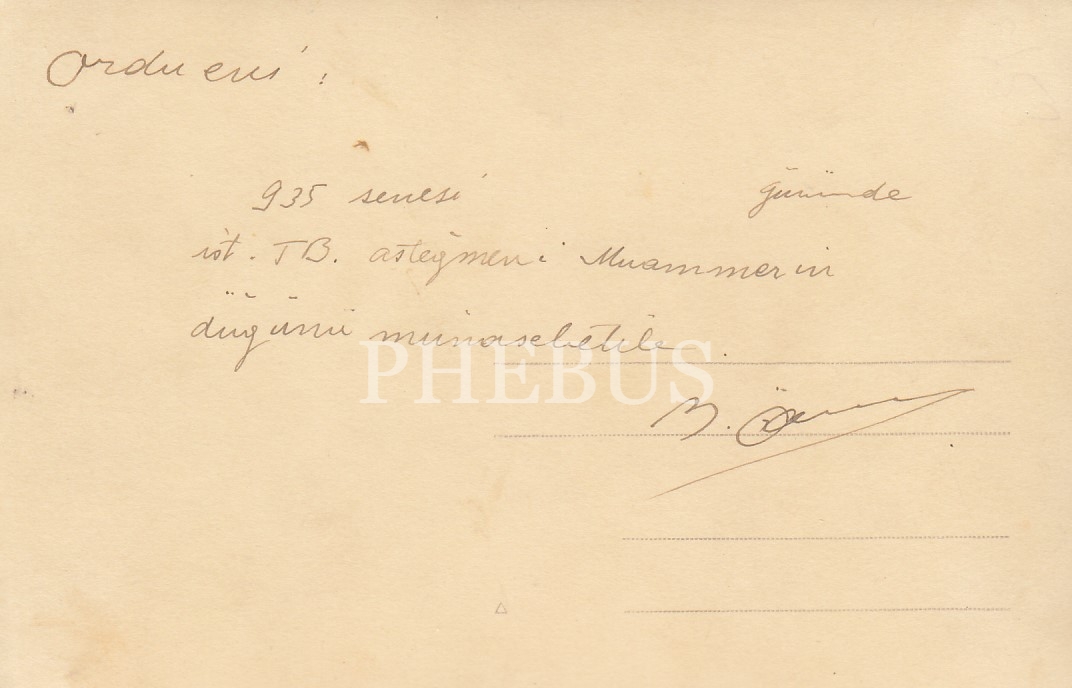 Ordu evi :
935 senesi gününde
ist. TB. asteğmeni Muammerin
düğünü münasebetile.
PHEBUS